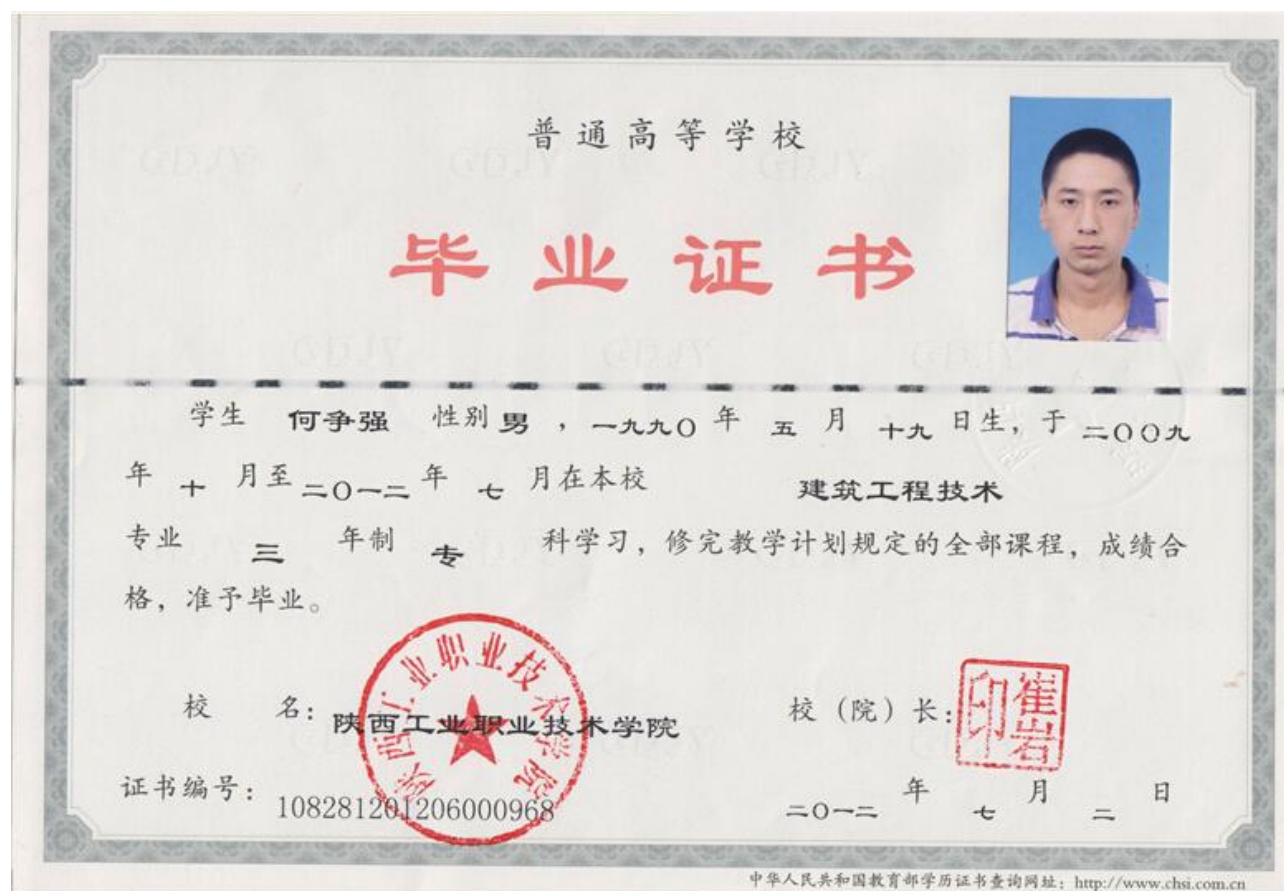 普通高等学校
毕业证书
学生 何争强 性别 男 ，一九九〇 年 五 月 十九 日生，于 二〇〇九
年 十 月至 二〇一二 年 七 月在本校 建筑工程技术
专业 三 年制 专 科学习，修完教学计划规定的全部课程，成绩合
格，准予毕业。
校 名：陕西工业职业技术学院
陕西工业职业技术学院
校（院）长：
崔岩印
证书编号：108281201206000968
二〇一二 年 七 月 二 日
中华人民共和国教育部学历证书查询网址：http://www.chsi.com.cn